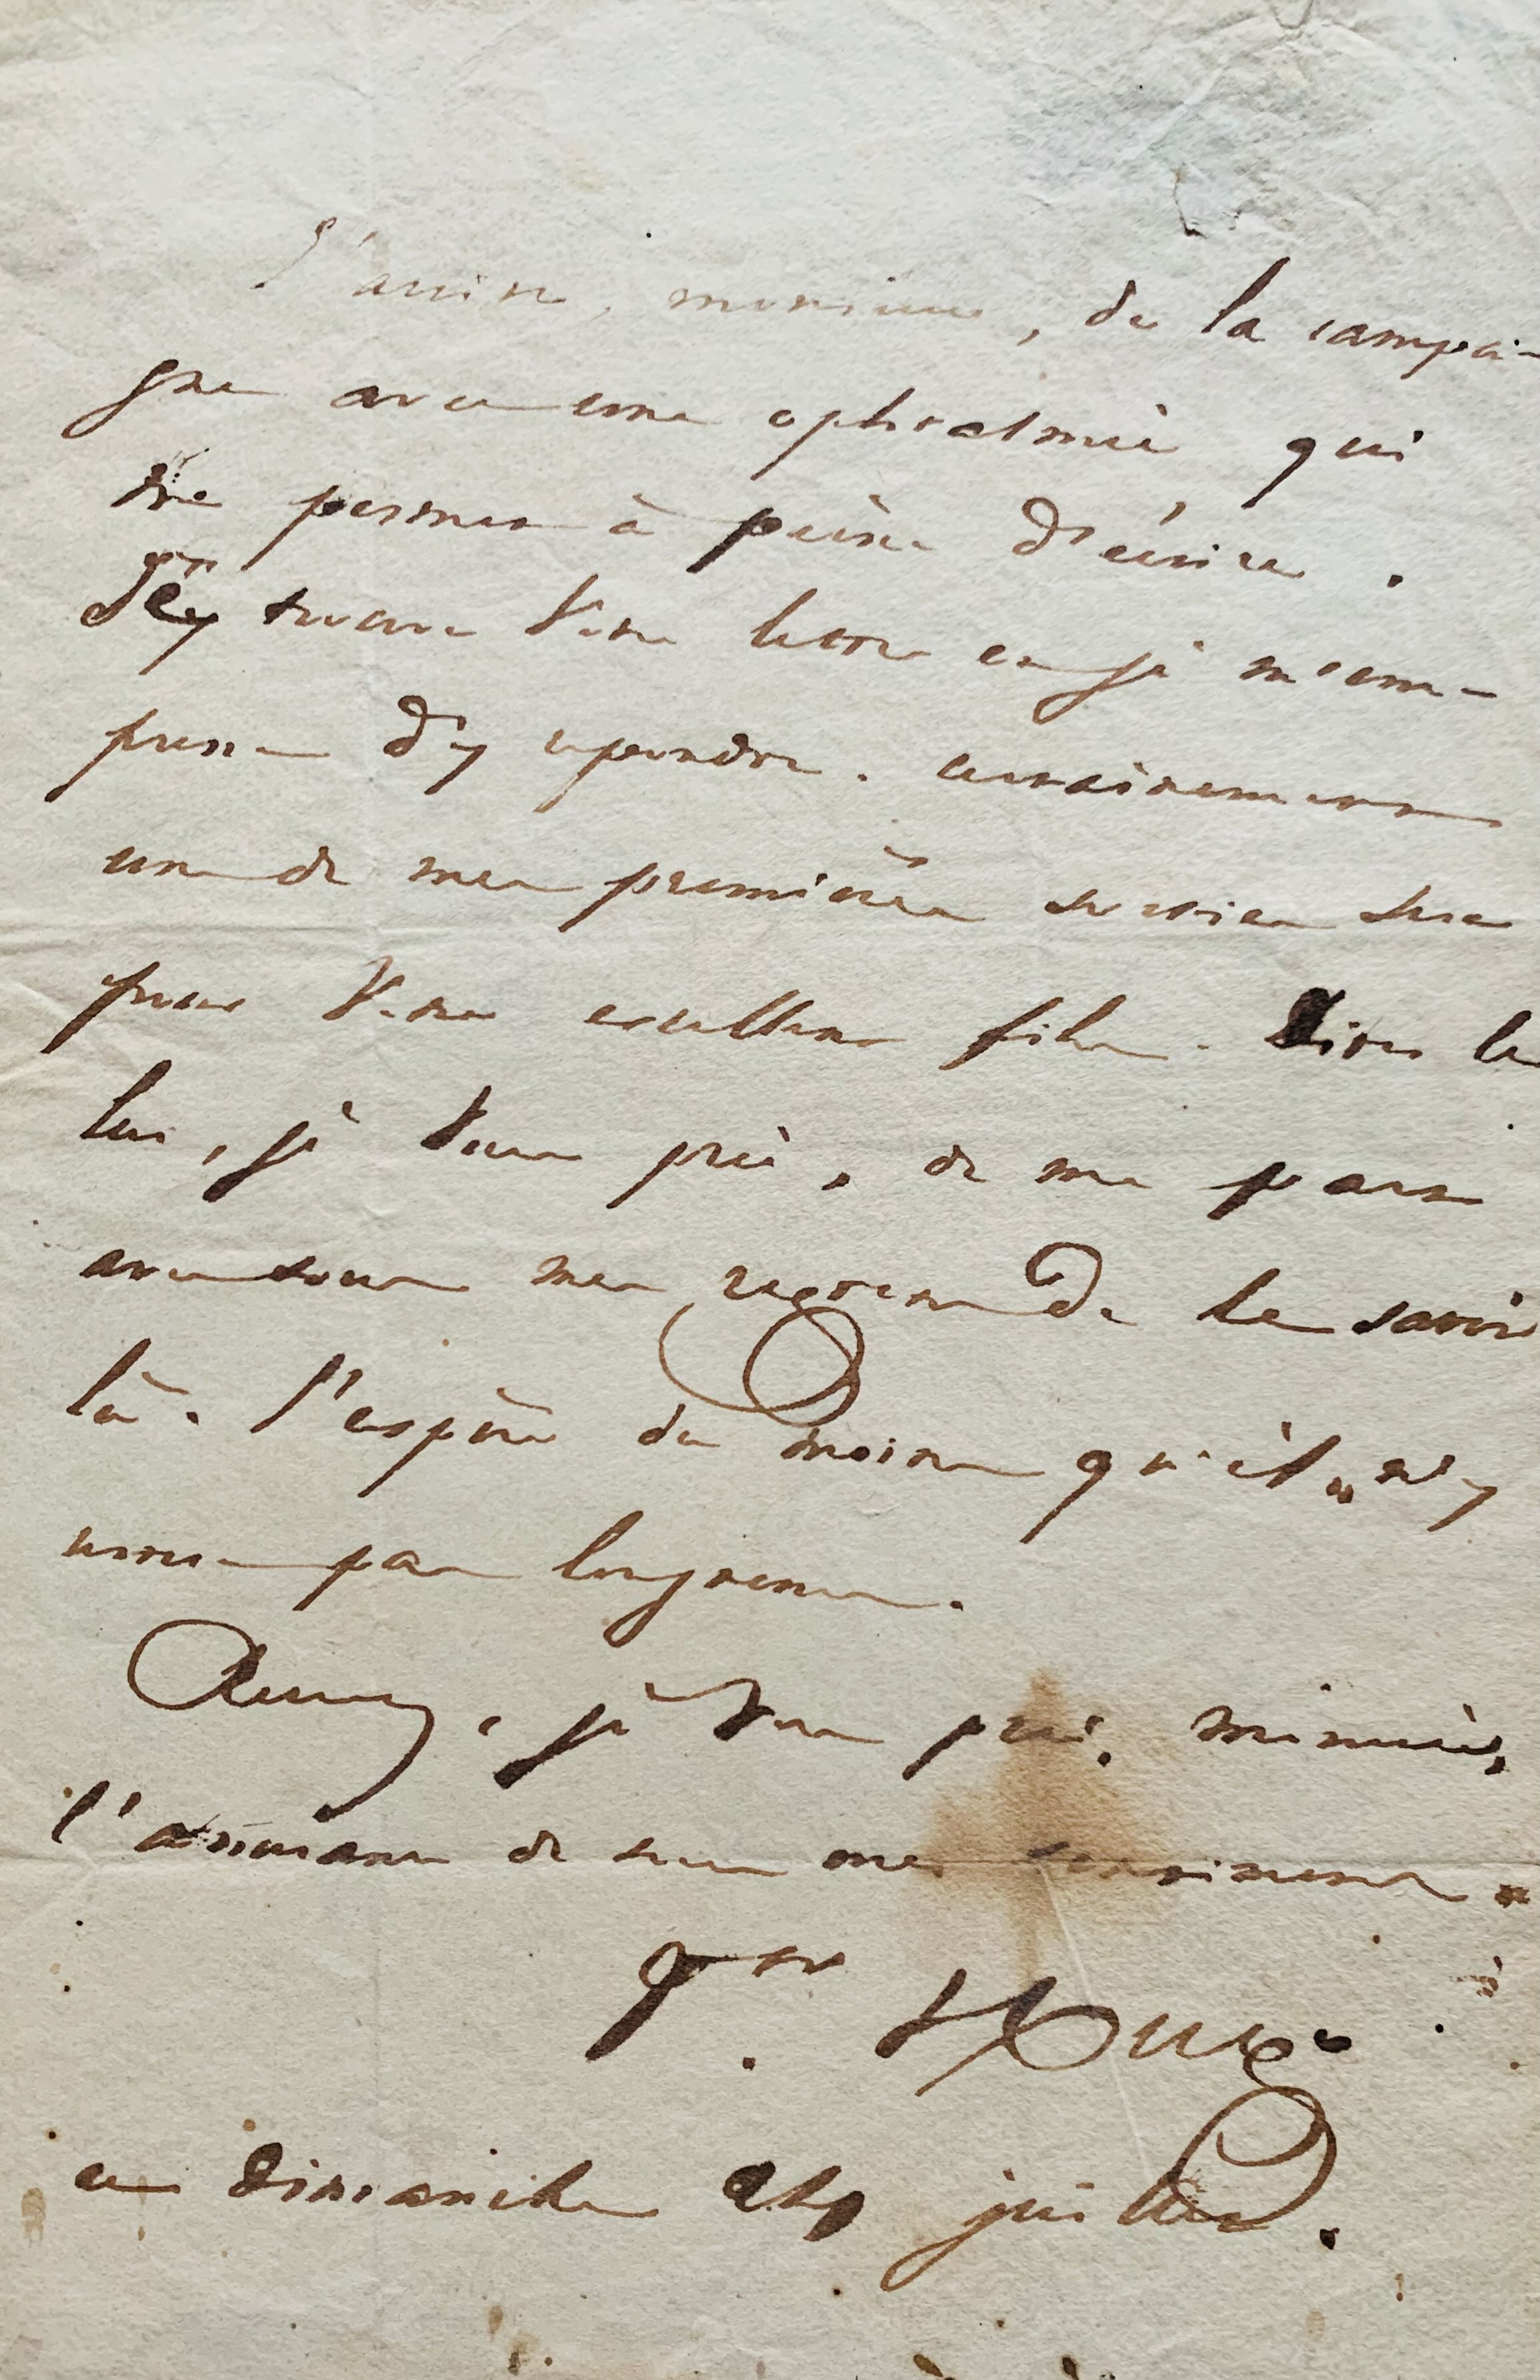 J'arrive, monsieur, de la campa-
gne avec une ophtalmie qui
me permet à peine d'écrire.
J'y trouve votre lettre et je m'em-
presse d'y répondre. certainement
une de mes premières sorties sera
pour votre excellent fils. Dites le
lui, je vous prie, de ma part
avec tous mes regrets de le savoir
là. J'espère du moins qu'il n'y
restera pas longtemps.
Recevez, je vous prie, monsieur,
l'assurance de tous mes sentiments
Vor Hugo
ce dimanche 24 juillet.